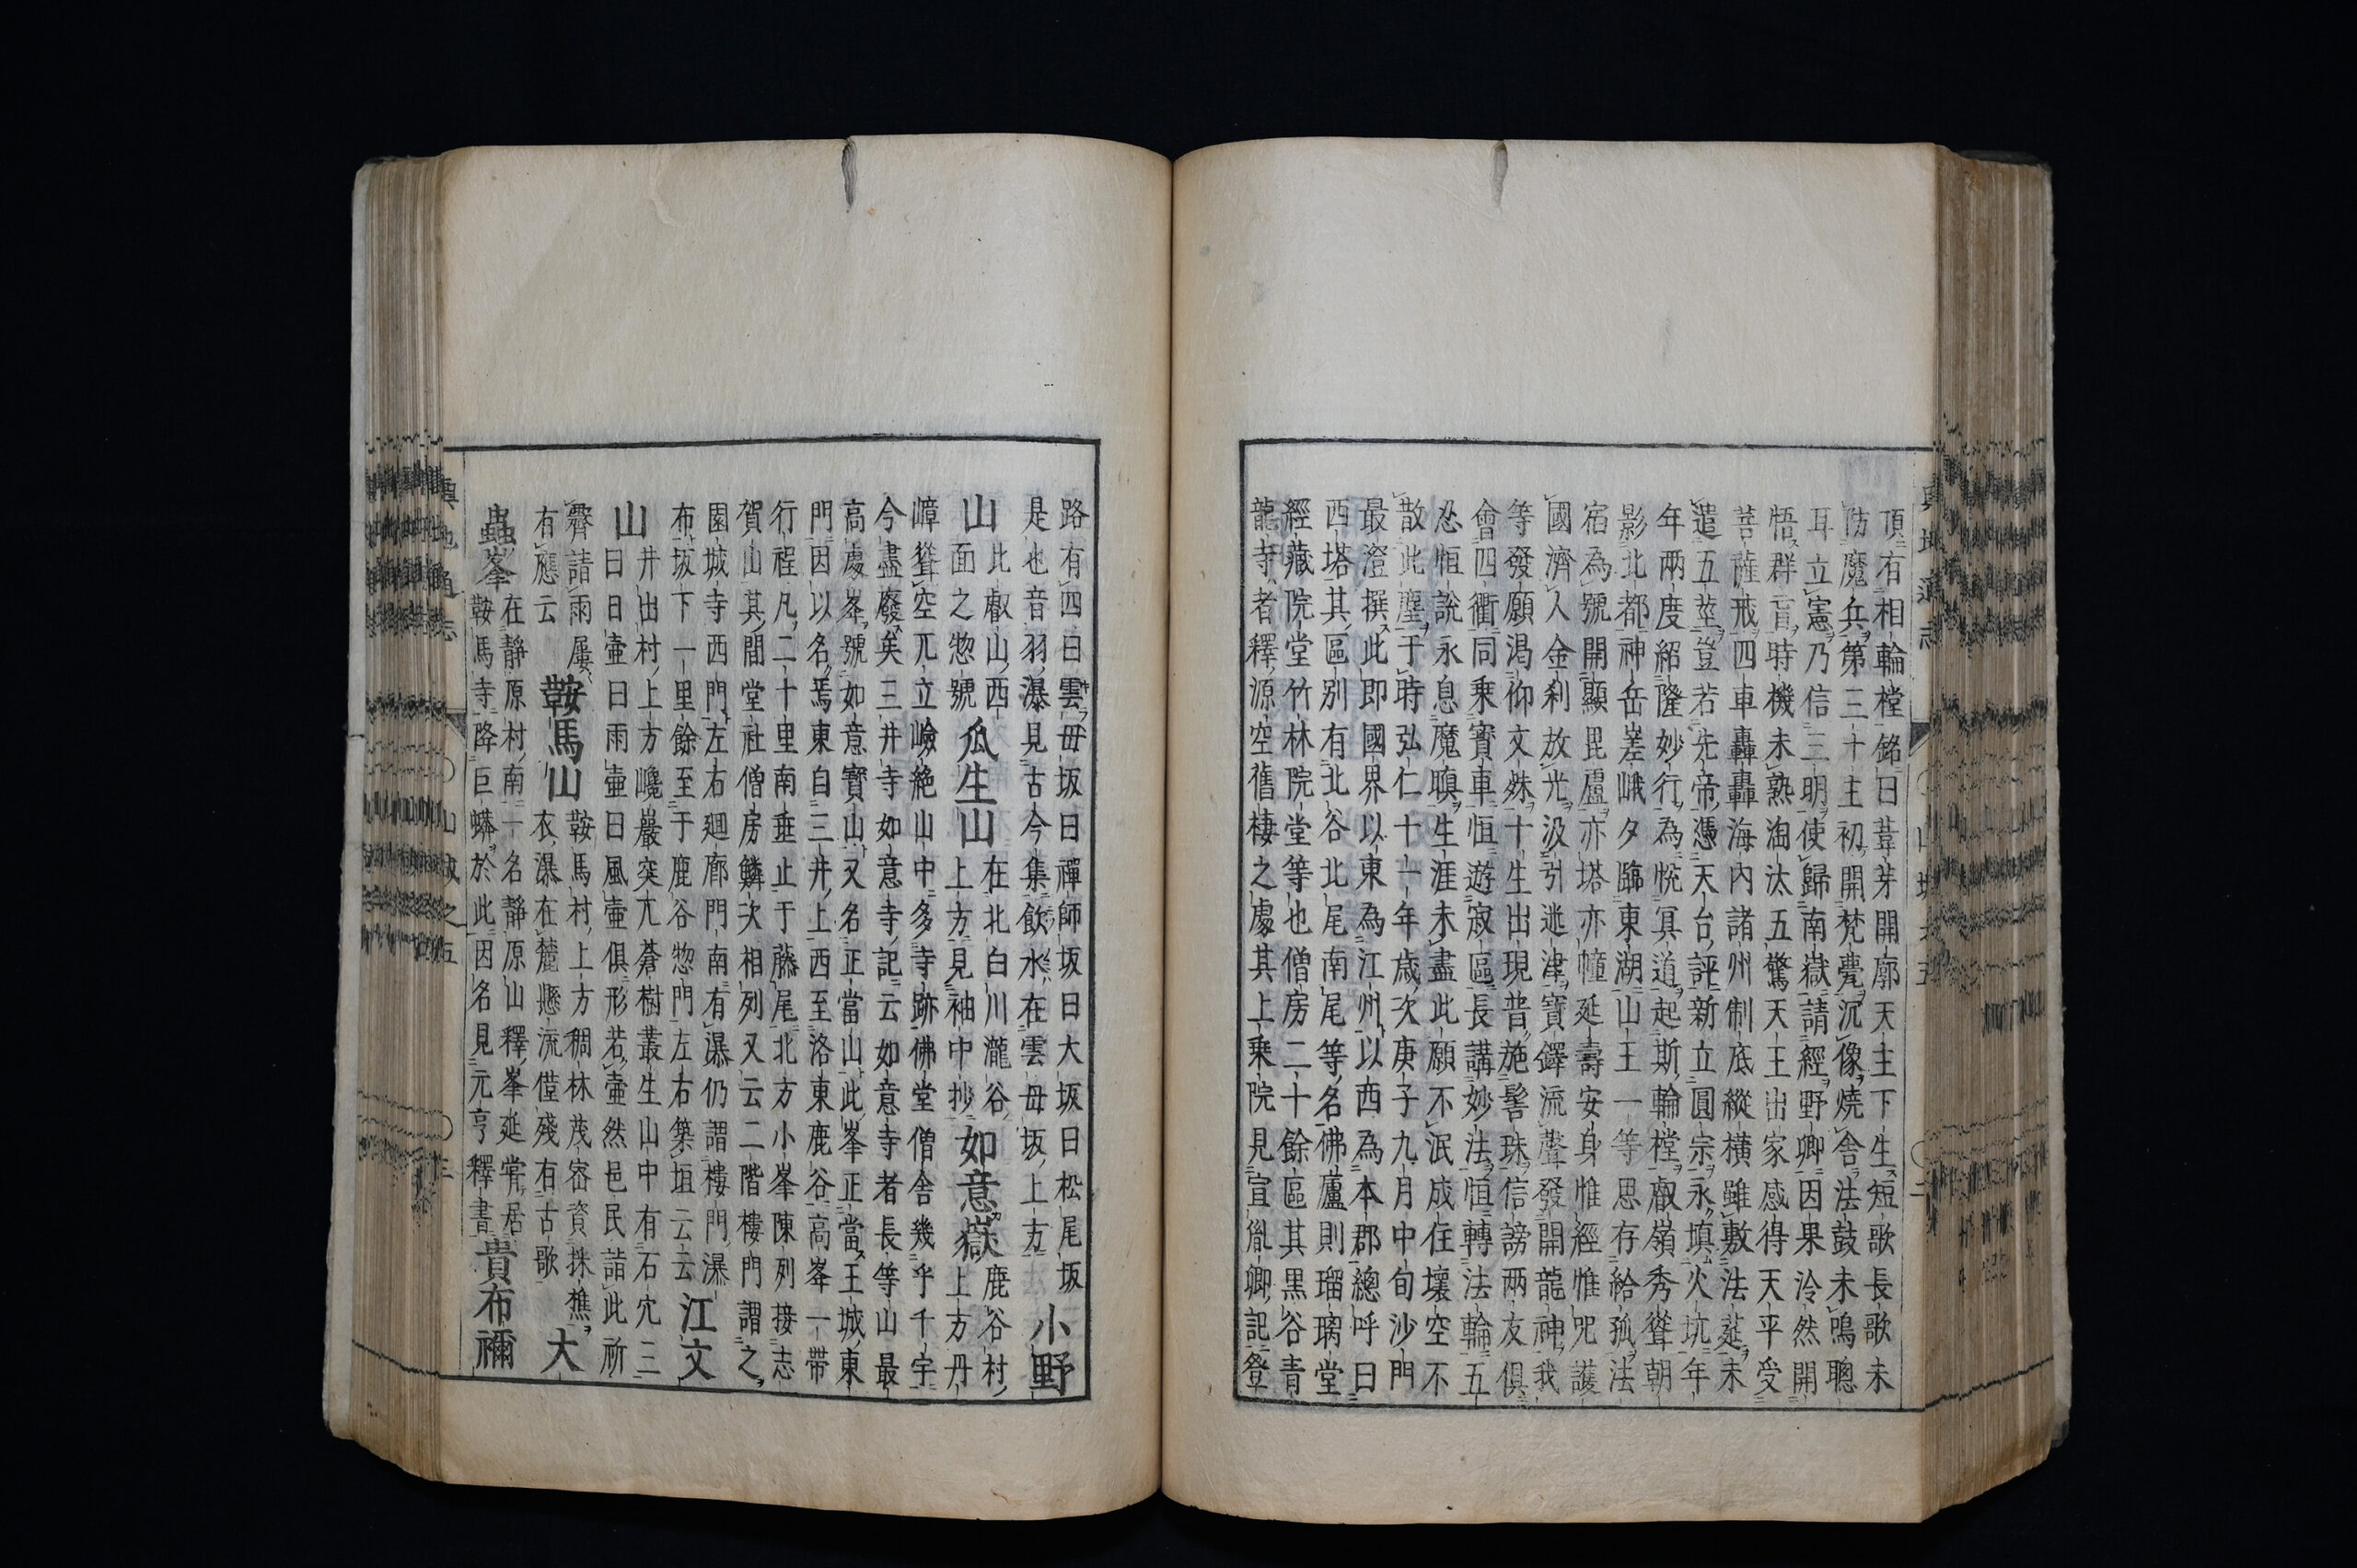 頂有相輪樘銘曰葦芽開廓天主下生短歌長歌未
防魔兵第三十主初開梵甍沉像燒舍法鼓未鳴聰
耳立憲乃信三明使歸南嶽請經野卿因果泠然開
悟群盲時機未熟淘汰五驚天王出家感得天平受
菩薩戒四車轟轟海內諸州制底縱横雖敷法莚未
遣五莖豈若先帝憑天台評新立圓宗永填火坑年
年兩度紹隆妙行為悦冥道起斯輪樘叡嶺秀聳朝
影北都神岳嵳峨夕臨東湖山王一等思存給孤法
宿為號開顯毘盧亦塔亦幢延壽安身惟經惟呪護
國濟人金刹放光汲引迷津寶鐸流聲發開龍神我
等發願渇仰文殊十生出現普施髻珠信謗兩友俱
會四衢同乘寶車恒遊寂區長講妙法恒轉法輪五
忍恒說永息魔嗔生涯未盡此願不泯成住壞空不
散此塵于時弘仁十一年歲次庚子九月中旬沙門
最澄撰此即國界以東為江州以西為本郡總呼曰
西塔其區别有北谷北尾南尾等名佛廬則瑠璃堂
經藏院堂竹林院堂等也僧房二十餘區其黒谷青
龍寺者釋源空舊棲之處其上乘院見宣胤卿記登
輿地通志
山城之五
二
路有四曰雲母坂曰禪師坂曰大坂曰松尾坂
是也音羽瀑見古今集飲水在雲母坂上方 小野
山 此叡山西面之惣號 瓜生山 在北白川瀧谷上方見袖中抄 如意嶽 鹿谷村上方丹
嶂聳空兀立嶮絶山中多寺跡佛堂僧舍幾乎千宇
今盡廢矣三井寺如意寺記云如意寺者長等山最
高處峯號如意寶山又名正當山此峯正當王城東
門因以名焉東自三井上西至洛東鹿谷高峯一帶
行程凡二十里南垂止于藤尾北方小峯陳列接志
賀山其間堂社僧房鱗次相列又云二階樓門謂之
園城寺西門左右廻廊門南有瀑仍謂樓門瀑
布坂下一里餘至于鹿谷惣門左右築垣云云 江文
山 井出村上方巉巖突兀蒼樹叢生山中有石穴三曰日壷曰雨壷曰風壷俱形若壷然邑民詣此祈
霽請雨屢有應云 鞍馬山 鞍馬村上方稠林茂密資採樵衣瀑在麓懸流僅殘有古歌 大
蟲峯 在靜原村南一名靜原山釋峯延甞居鞍馬寺降巨蟒於此因名見元亨釋書 貴布禰
輿地通志
山城之五
三